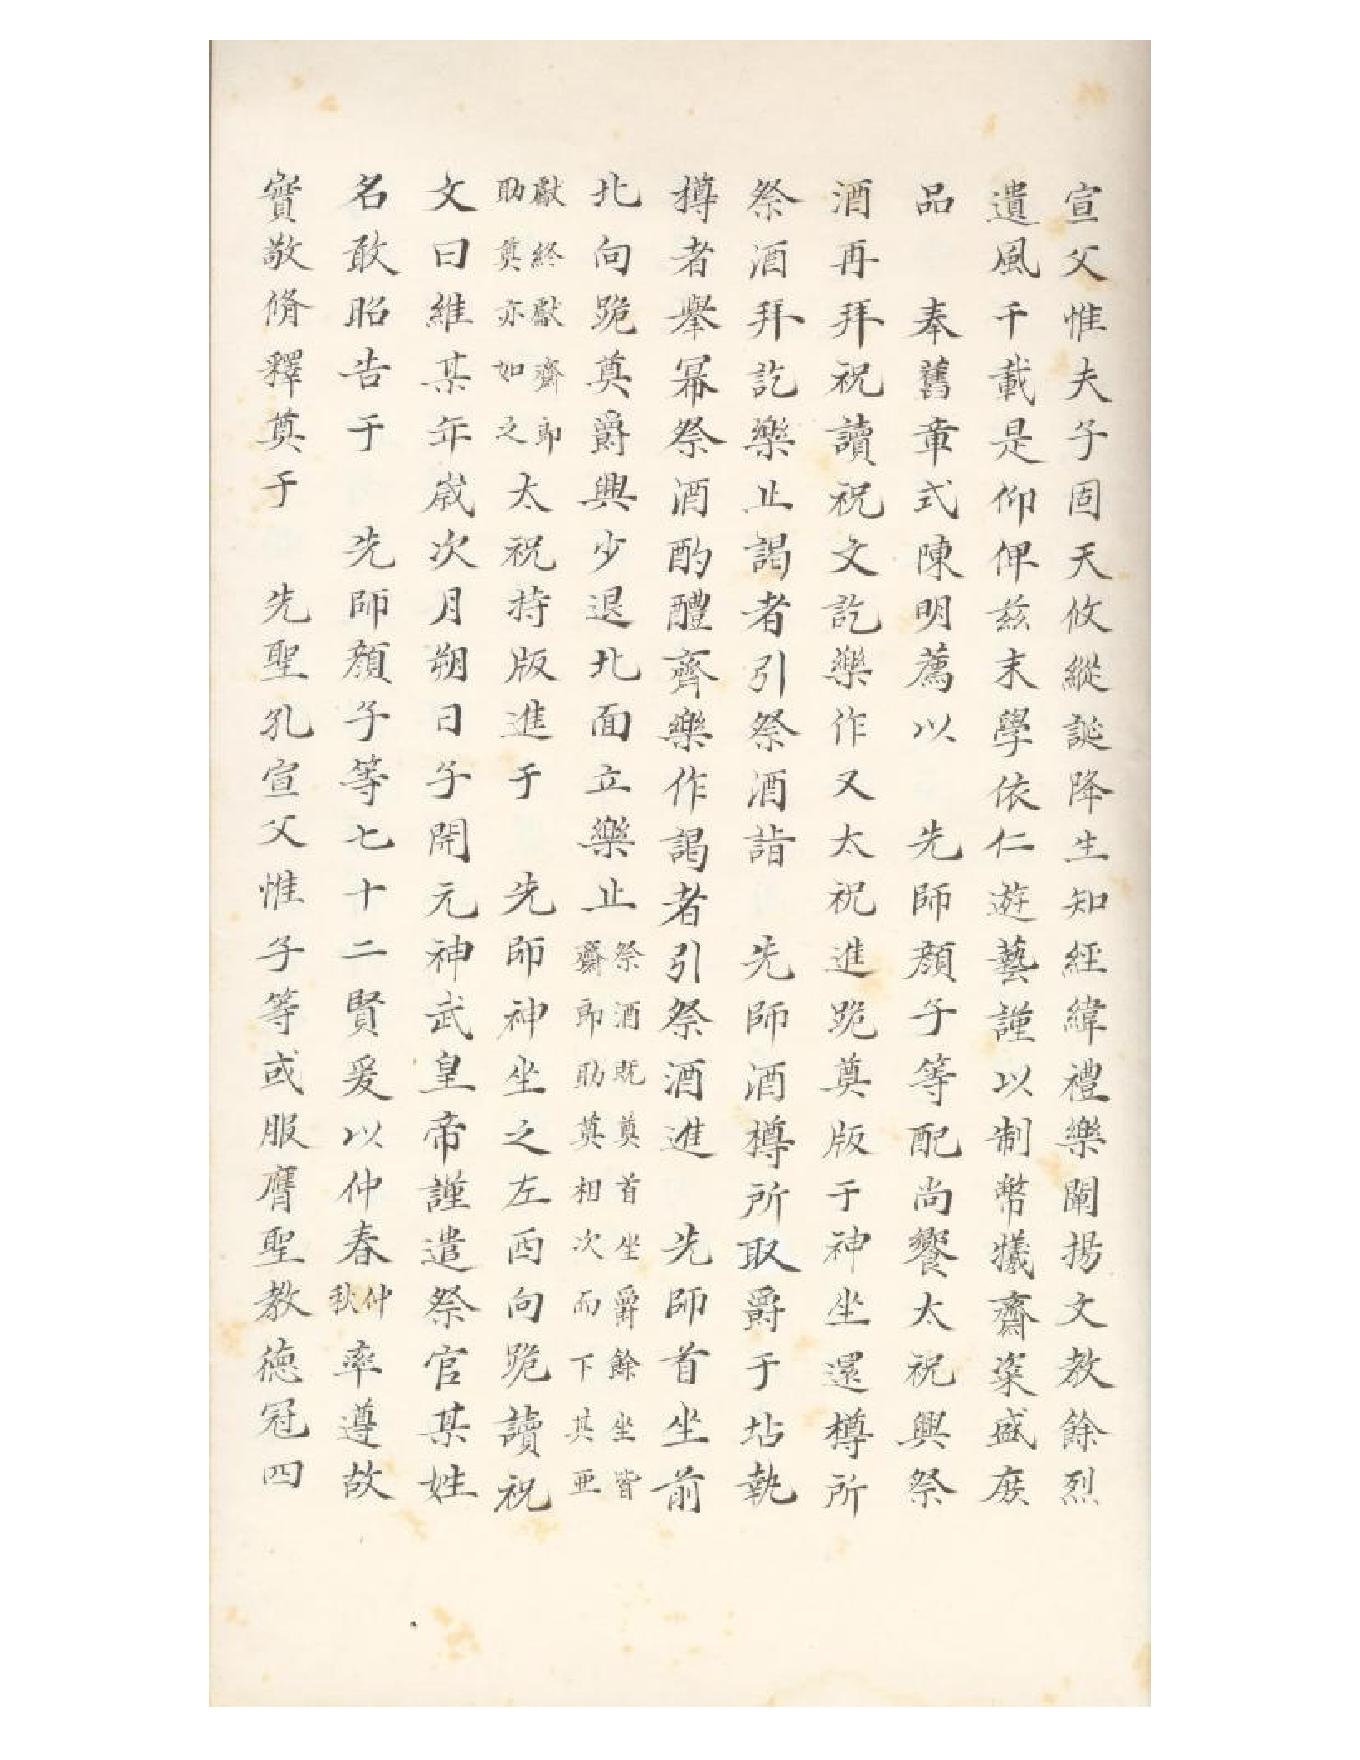 宣父惟夫子固天攸縱誕降生知經緯禮樂闡揚文教餘烈
遺風千載是仰俾茲末學依仁遊藝謹以制幣犧齋粢盛庶
品　奉舊章式陳明薦以　先師顏子等配尚饗太祝興祭
酒再拜祝讀祝文訖樂作又太祝進跪奠版于神坐還樽所
祭酒拜訖樂止謁者引祭酒詣　先師酒樽所取爵于坫執
樽者舉冪祭酒酌醴齊樂作謁者引祭酒進　先師首坐前
北向跪奠爵興少退北面立樂止祭酒既奠首坐爵餘坐皆齋郎助奠相次而下其亞
獻終獻齋郎助奠亦如之太祝持版進于　先師神坐之左西向跪讀祝
文曰維某年歲次月朔日子開元神武皇帝謹遣祭官某姓
名敢昭告于　先師顏子等七十二賢爰以仲春仲秋率遵故
實敬脩釋奠于　先聖孔宣父惟子等或服膺聖教德冠四